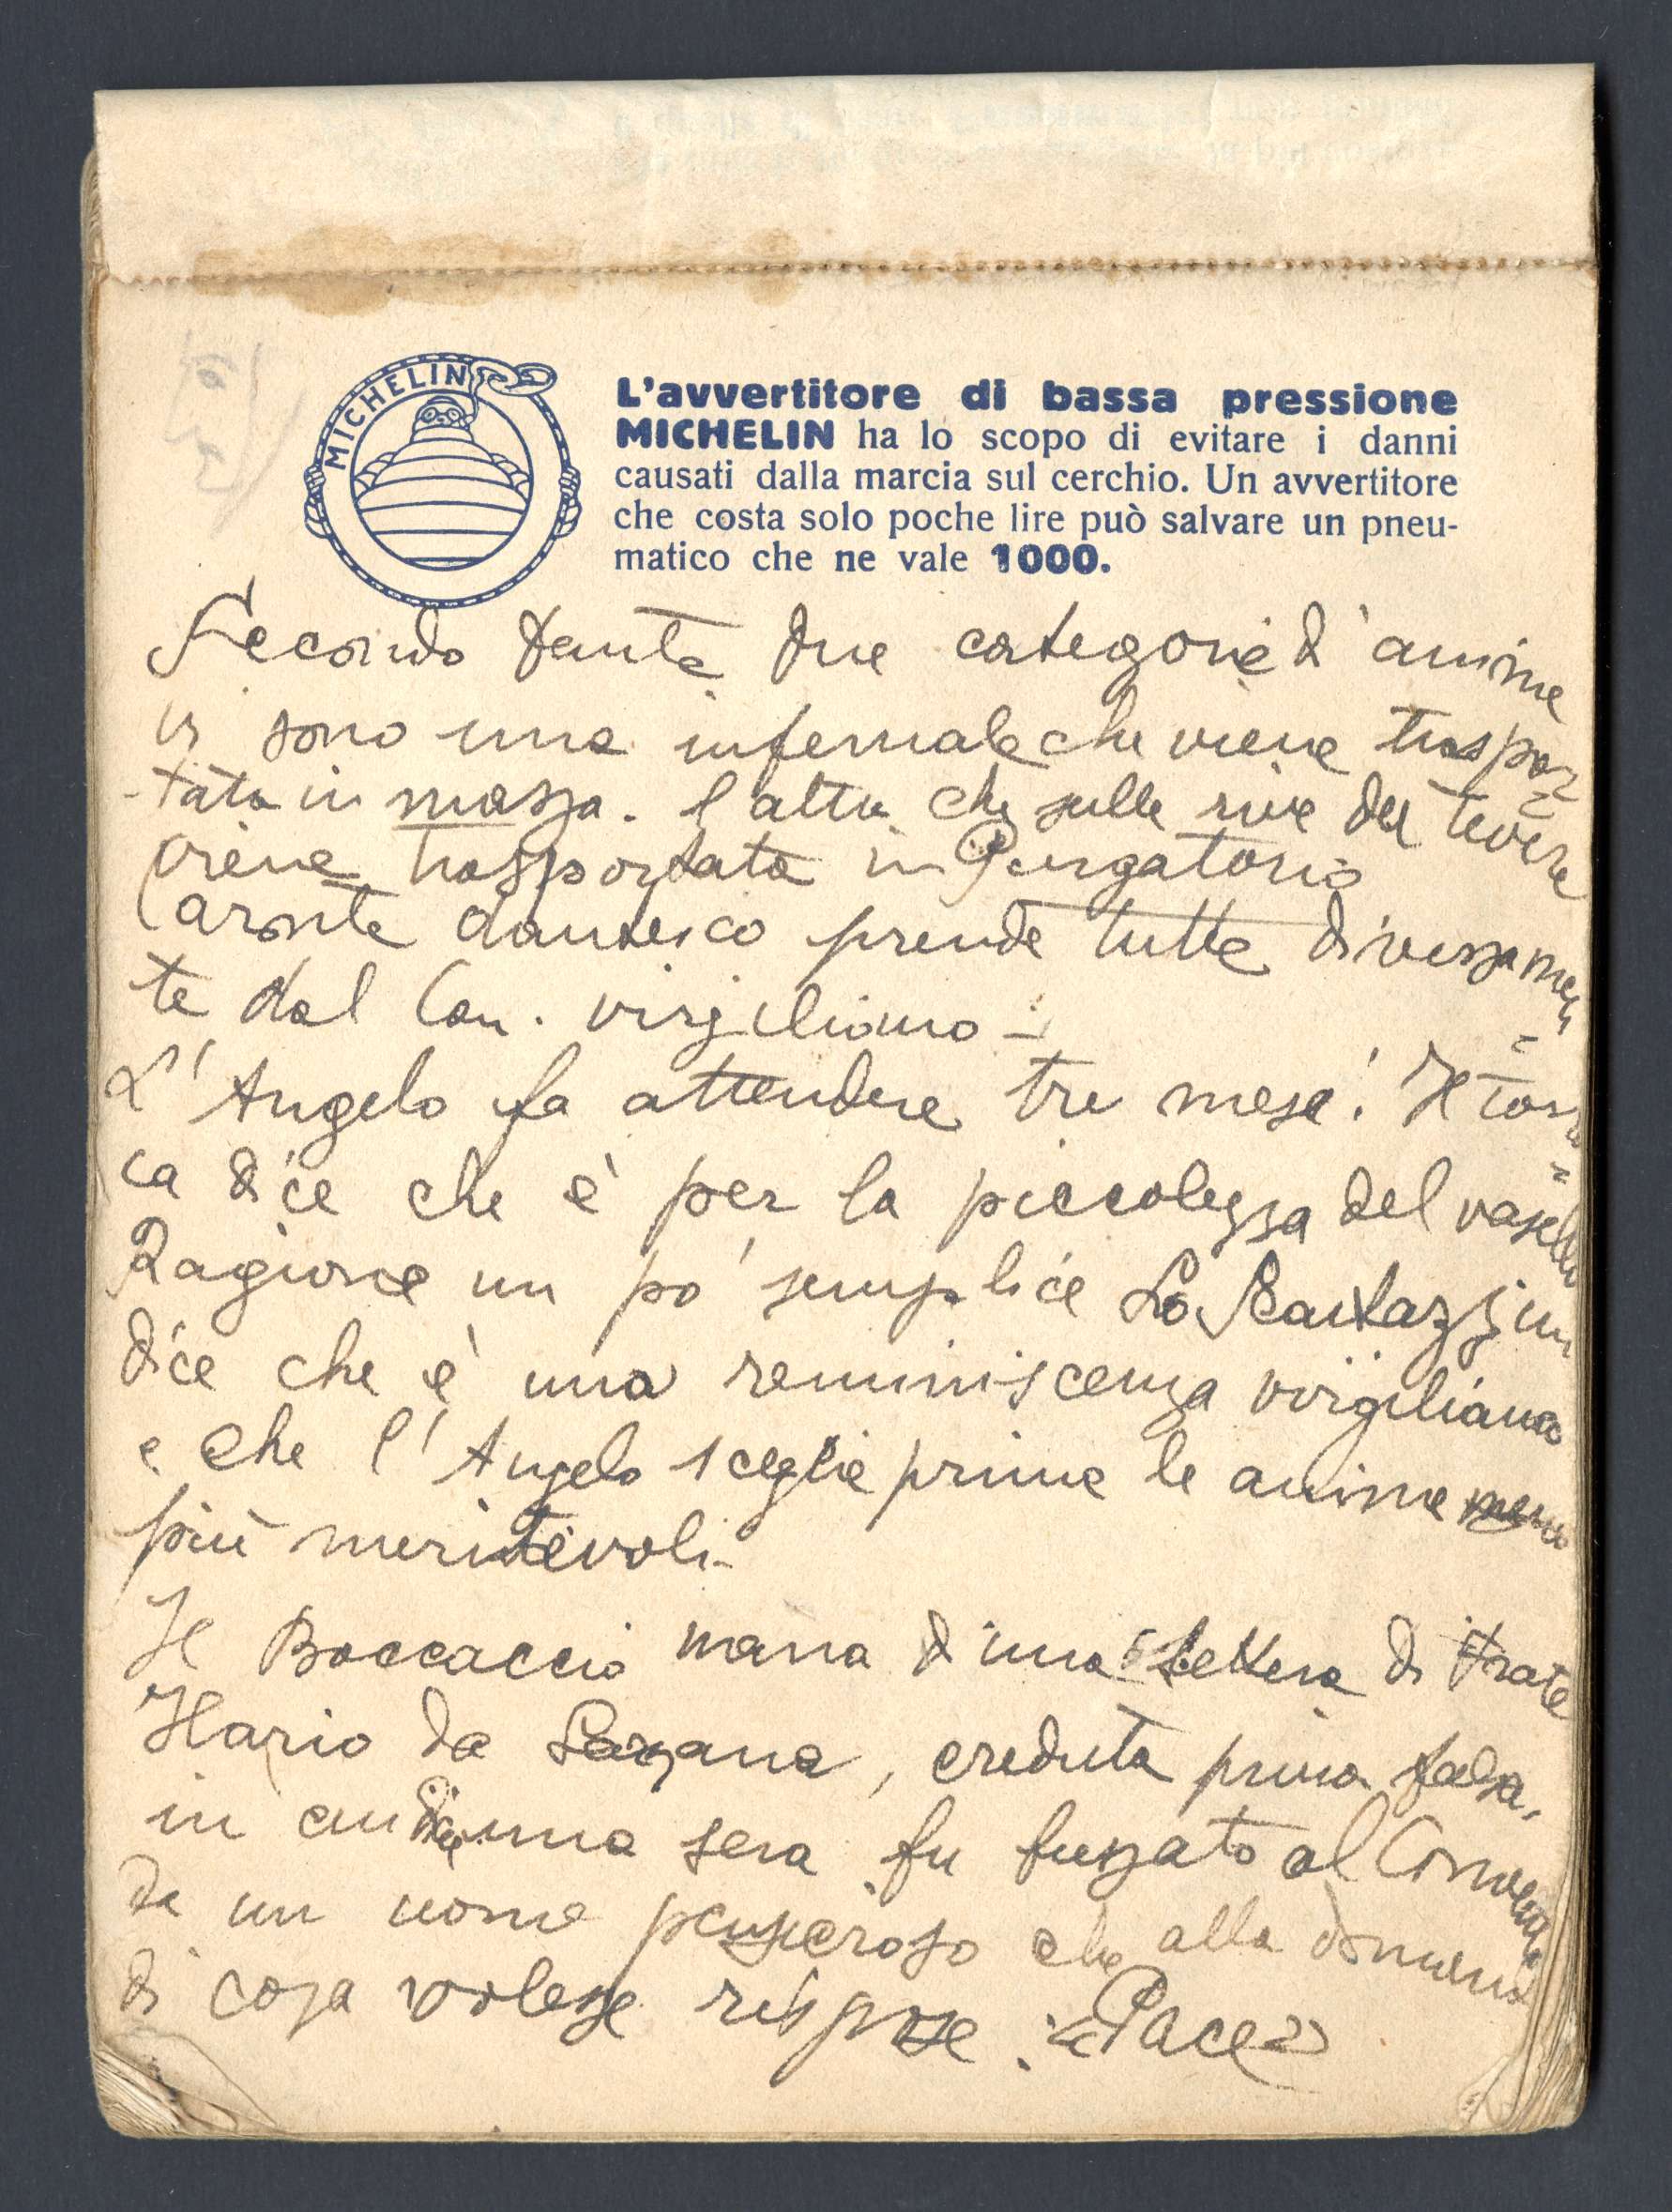 MICHELIN
L'avvertitore di bassa pressione
MICHELIN ha lo scopo di evitare i danni
causati dalla marcia sul cerchio. Un avvertitore
che costa solo poche lire può salvare un pneu-
matico che ne vale 1000.
Secondo Dante due categorie d'anime
vi sono una infernale che viene traspor
-tata in massa. l'altra che sulle rive del Tevere
viene trasportata in Purgatorio
Caronte dantesco prende tutte diversamen
te dal Car. virgiliano -
L'Angelo fa attendere tre mesi. Il
ca dice che è per la piccolezza del vasello
Ragione un po' semplice Lo Scartazzini
dice che è una reminiscenza virgiliana
e che l'Angelo sceglie prima le anime
più meritevoli -
Il Boccaccio narra d'una lettera di frate
Ilario da Sarzana, creduta prima falsa,
in cui una sera fu bussato al Convento
da un uomo pensieroso che alla domanda
di cosa volesse rispose: «Pace»